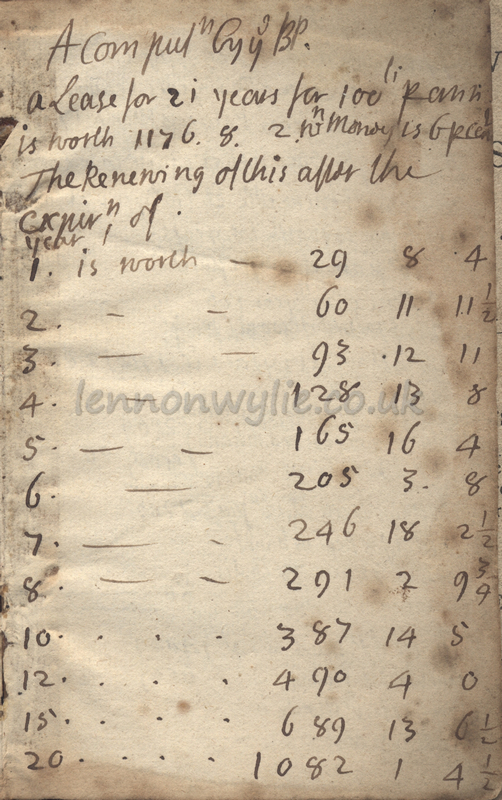 A Computn by ye Bp.
a Lease for 21 years for 100li p ann
is worth 1176. 8. 2 wn Money is 6 p cent
The Renewing of this after the
expirn of.
year
1. is worth — 29 8 4
2. – – 60 11 11 1/2
3. — — 93 .12 11
4. — 128 13 8
5. — — 165 16 4
6. — 205 3. 8
7. — – 246 18 2 1/2
8. — – 291 2 9 3/4
10. . . . 387 14 5
12. . . . 490 4 0
15. . . . 689 13 6 1/2
20. . . . 1082 1 4 1/2
lennonwylie.co.uk